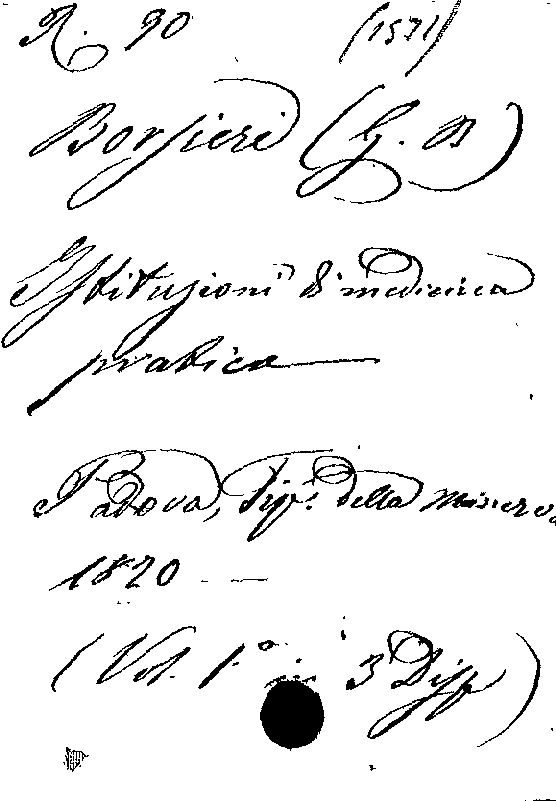 R. 90 (1571)
Borsieri (G. B)
Istituzioni di medicina
pratica
Padova, Tip. della Minerva
1820
(Vol. 1.º in 3 Disp)